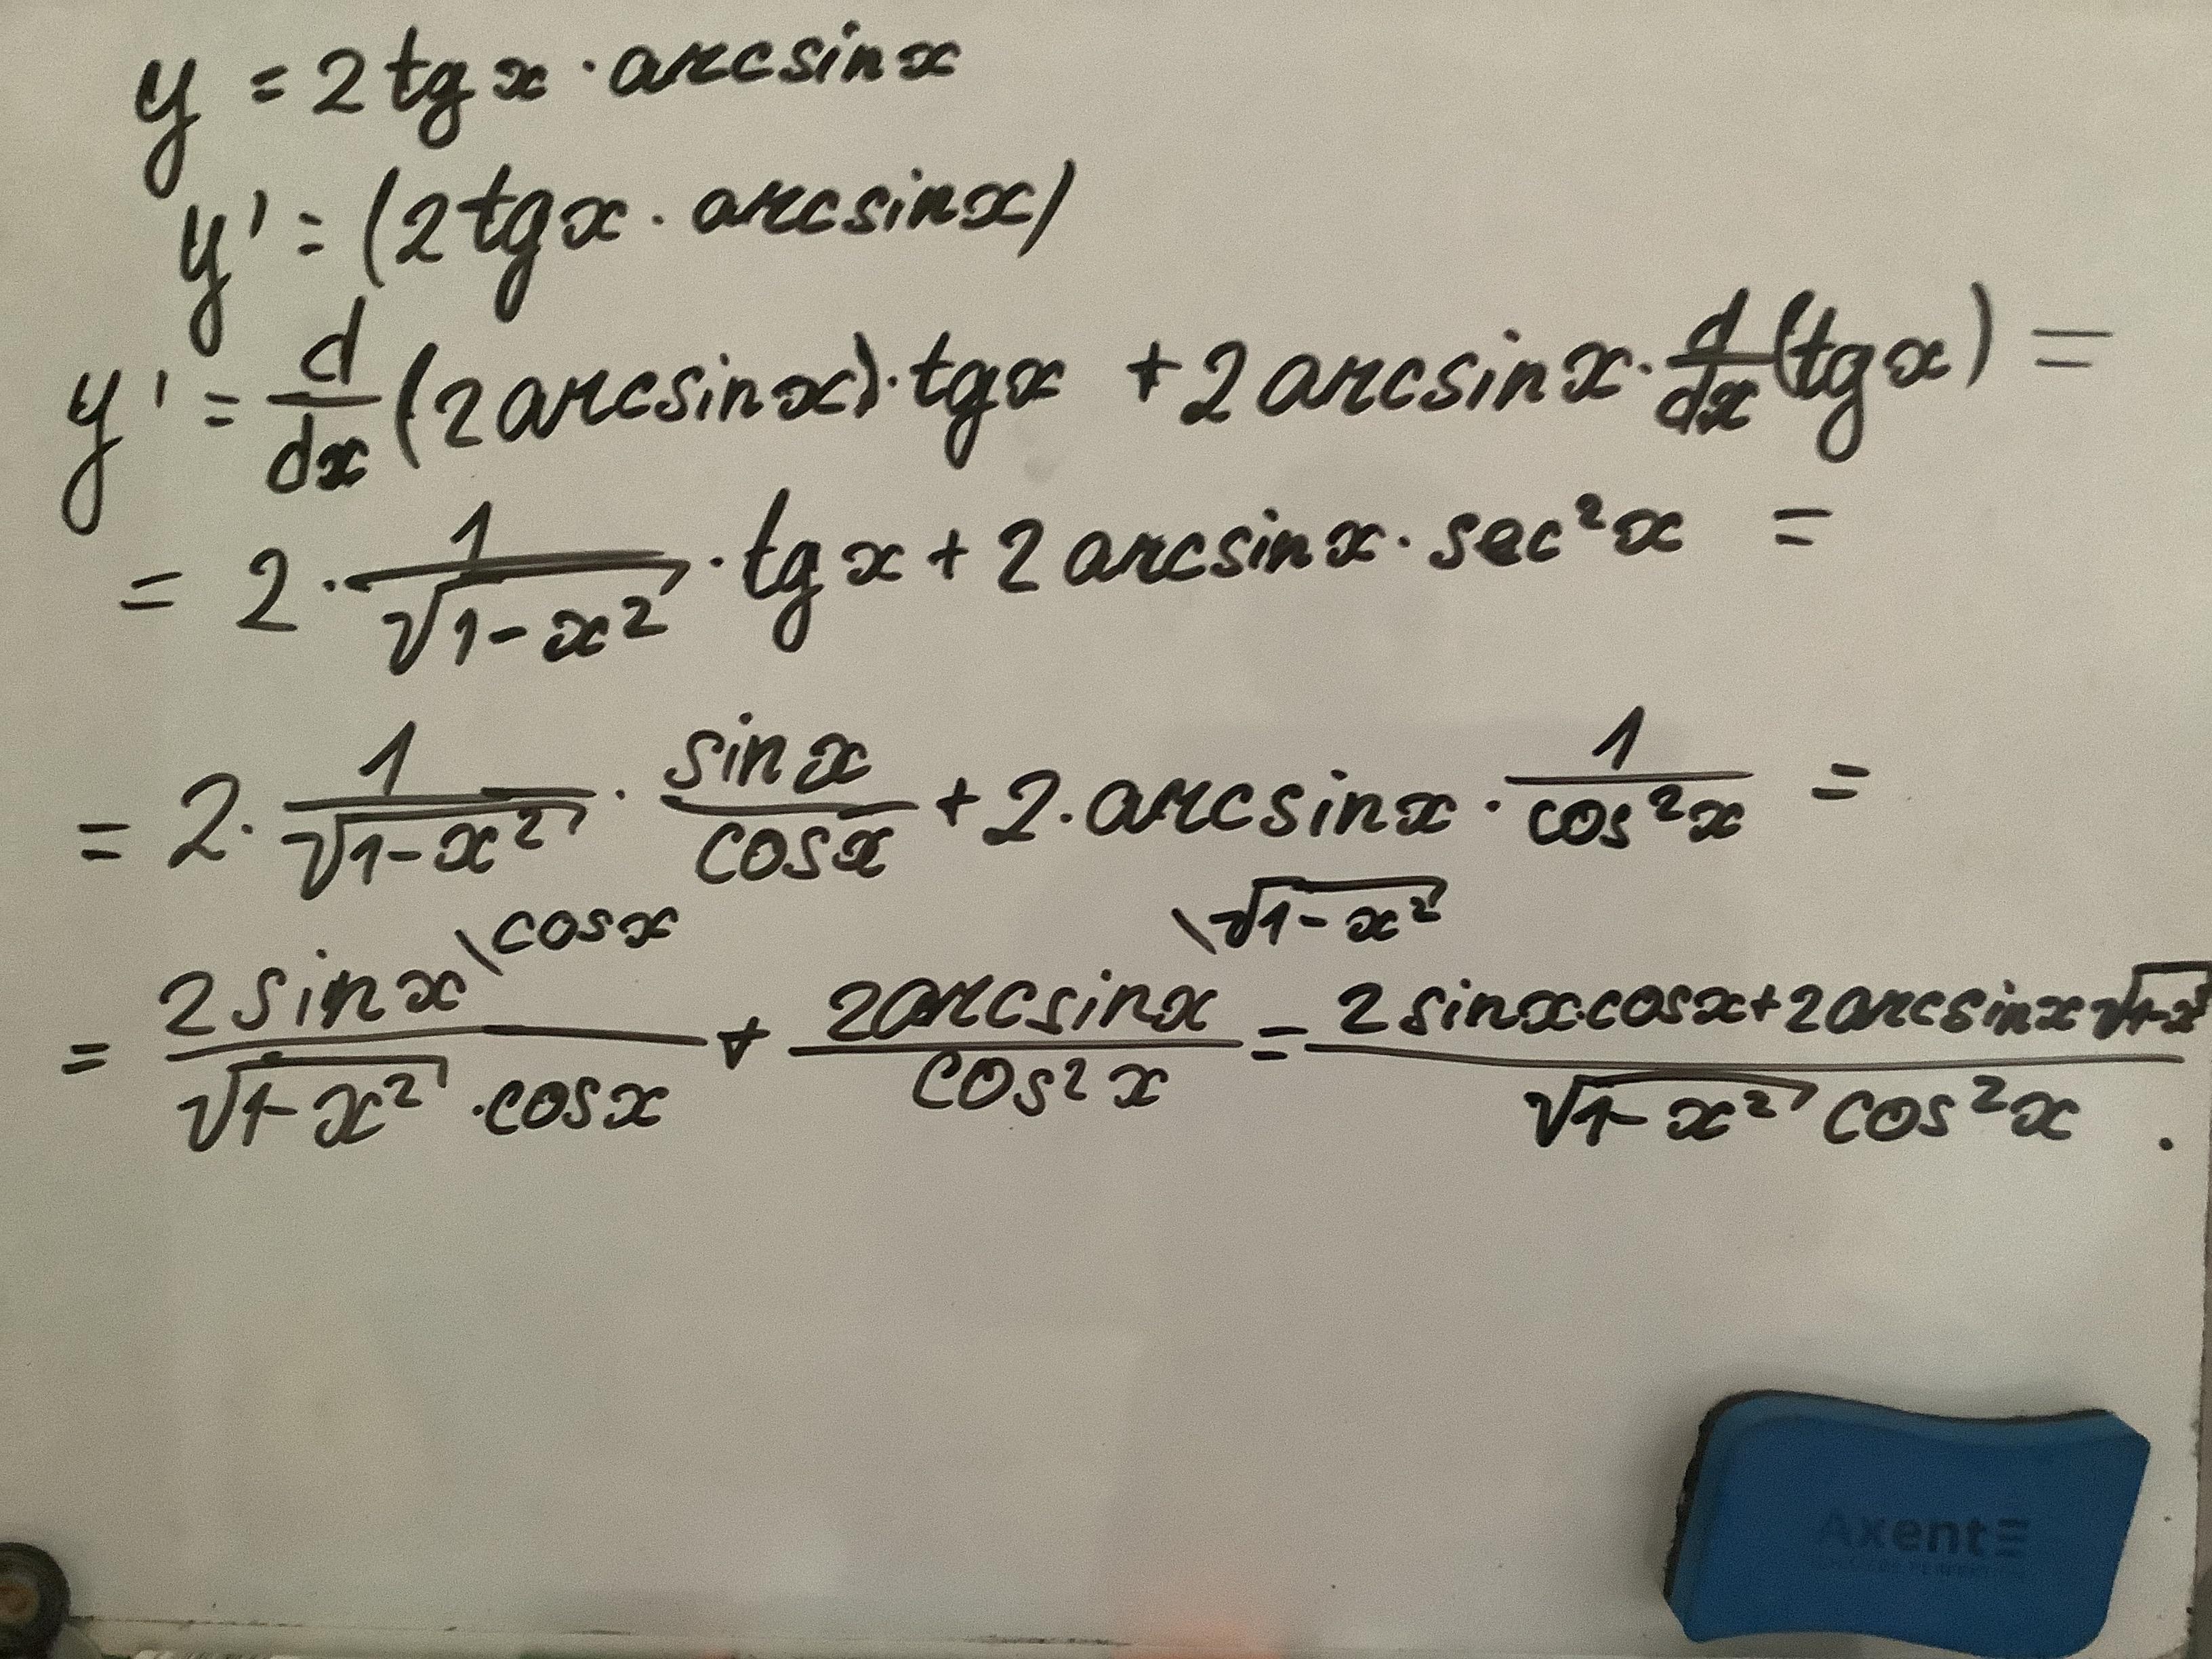 y = 2 tg x · arcsin x
y' = (2 tg x · arcsin x)
y' = d/dx (2 arcsin x) · tg x + 2 arcsin x · d/dx (tg x) =
= 2 · 1/√(1-x²) · tg x + 2 arcsin x · sec² x =
= 2 · 1/√(1-x²) · sin x/cos x + 2 · arcsin x · 1/cos² x =
= 2 sin x \cos x/√(1-x²) · cos x + 2 arcsin x \√(1-x²)/cos² x = 2 sin x · cos x + 2 arcsin x √(1-x²)/√(1-x²) cos² x .
Axent